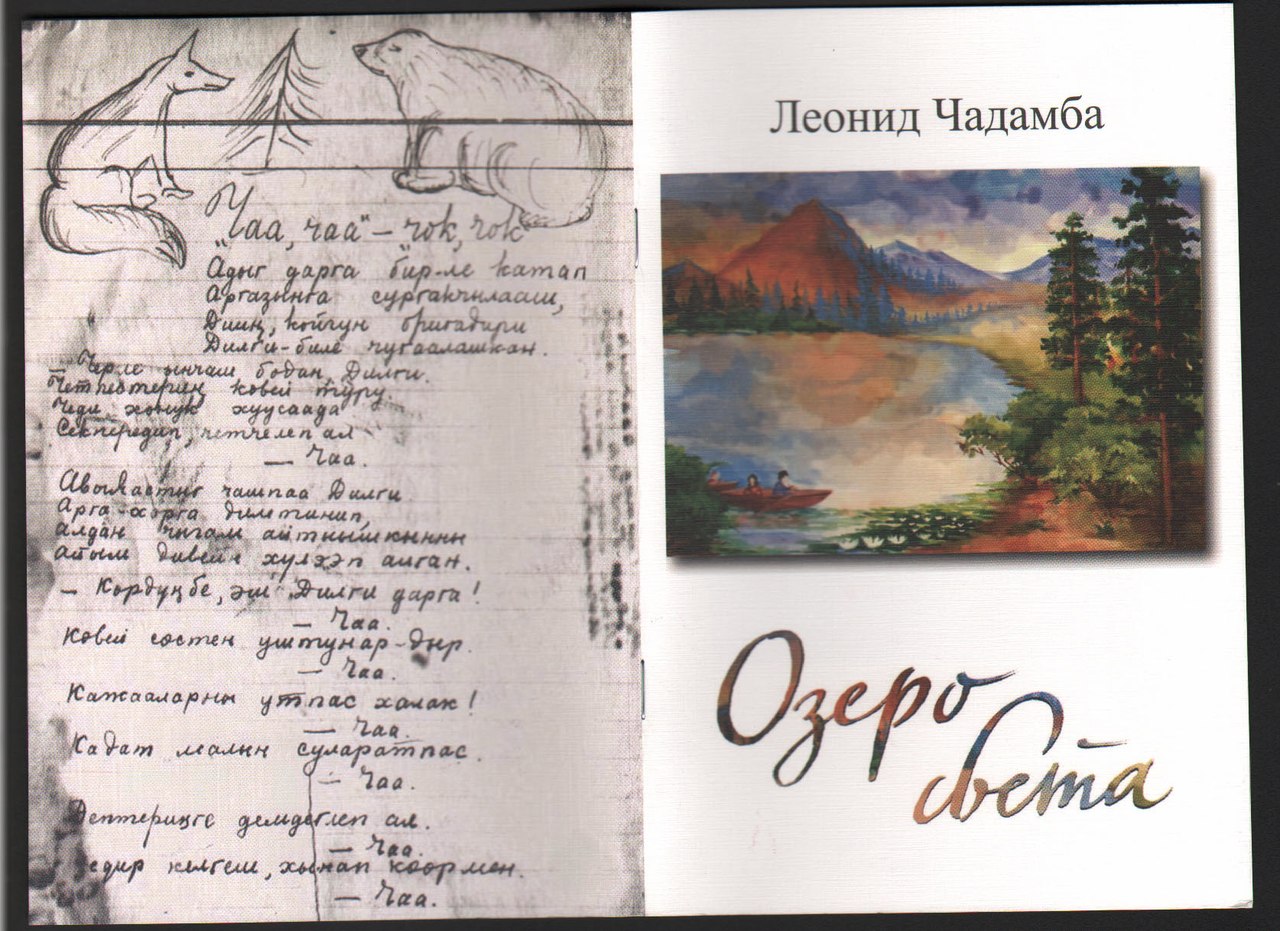 „Чаа, чаа“ – „чок, чок“
Адыг дарга бир-ле катап
Аргазынга сургакчылааш,
Дииң, койгун бригадири
Дилги-биле чугаалашкан.
— Черле ынчаш бодан, Дилги.
Четпестериң көвей тур.
Чеди хонук хуусаада
Секпередип, четчелеп ал
— Чаа.
Авыяастыг чашпаа Дилги
Арга-хорга
алдан чыгам айтыышкынны
айтыым дивейн хүлээп алган.
— Көрдүң бе, эш Дилги дарга!
— Чаа.
Көвей сөстен уштунар-дыр.
— Чаа.
Кажааларны утпас халак!
— Чаа.
Кадат малын суларатпас.
— Чаа.
Дептериңге демдеглеп ал.
— Чаа.
келгеш, хынап көөр мен.
— Чаа.
Леонид Чадамба
Озеро
света